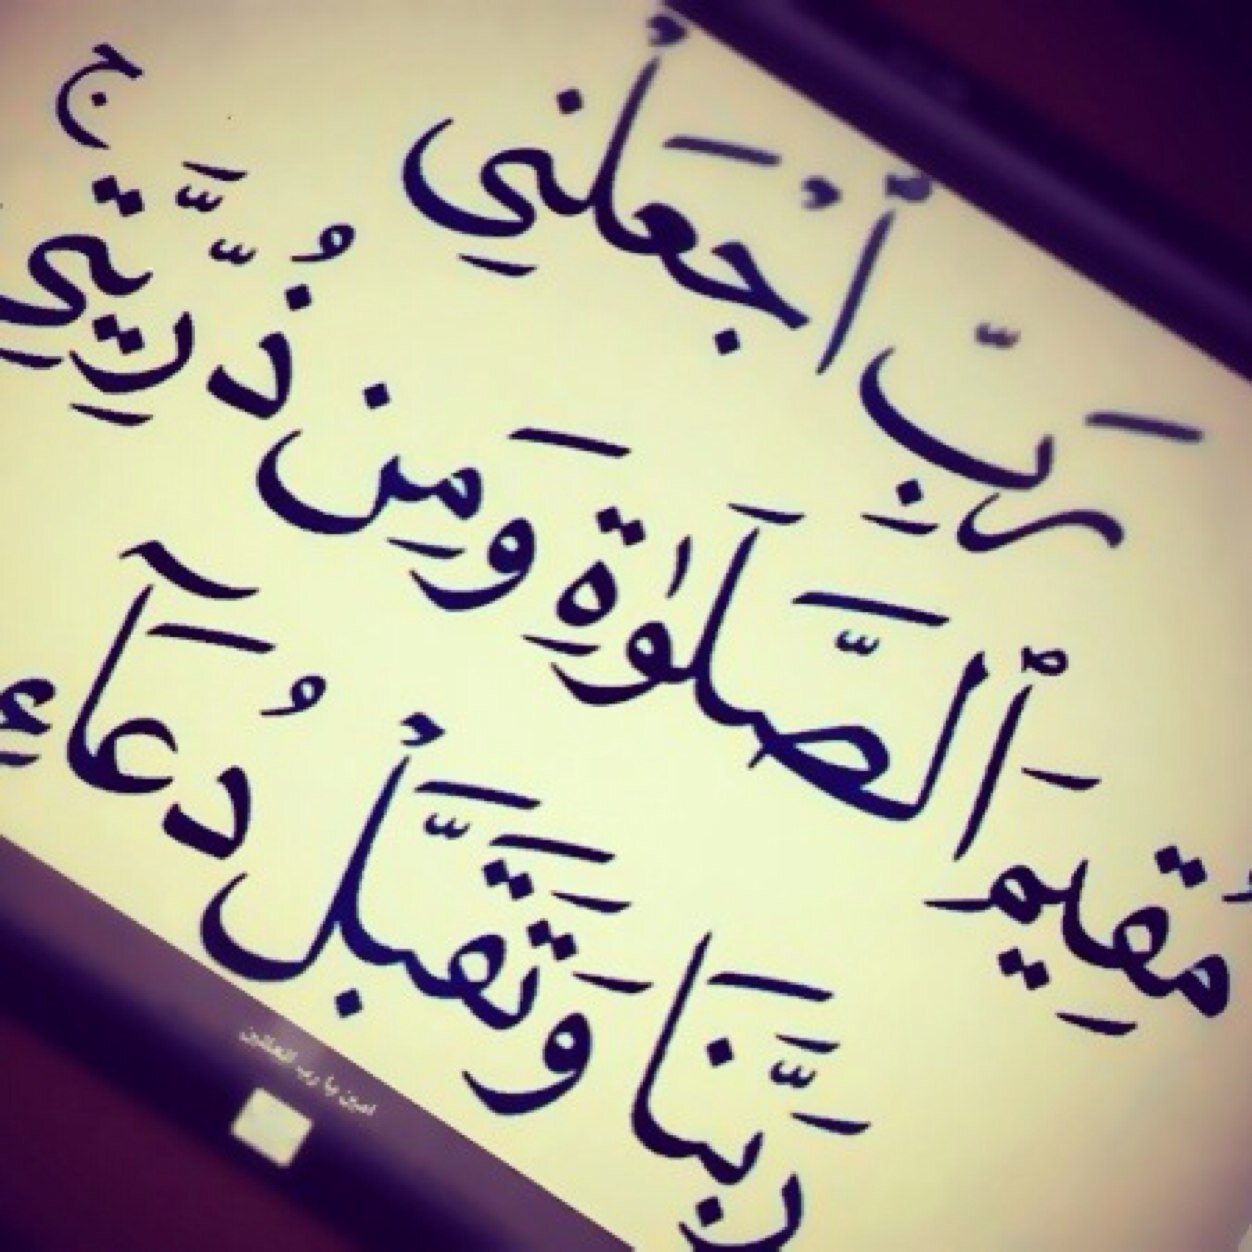 رَبِّ ٱجْعَلْنِي
مُقِيمَ ٱلصَّلَوٰةِ وَمِن ذُرِّيَّتِي ۚ
رَبَّنَا وَتَقَبَّلْ دُعَآءِ
امين يا رب العالمين